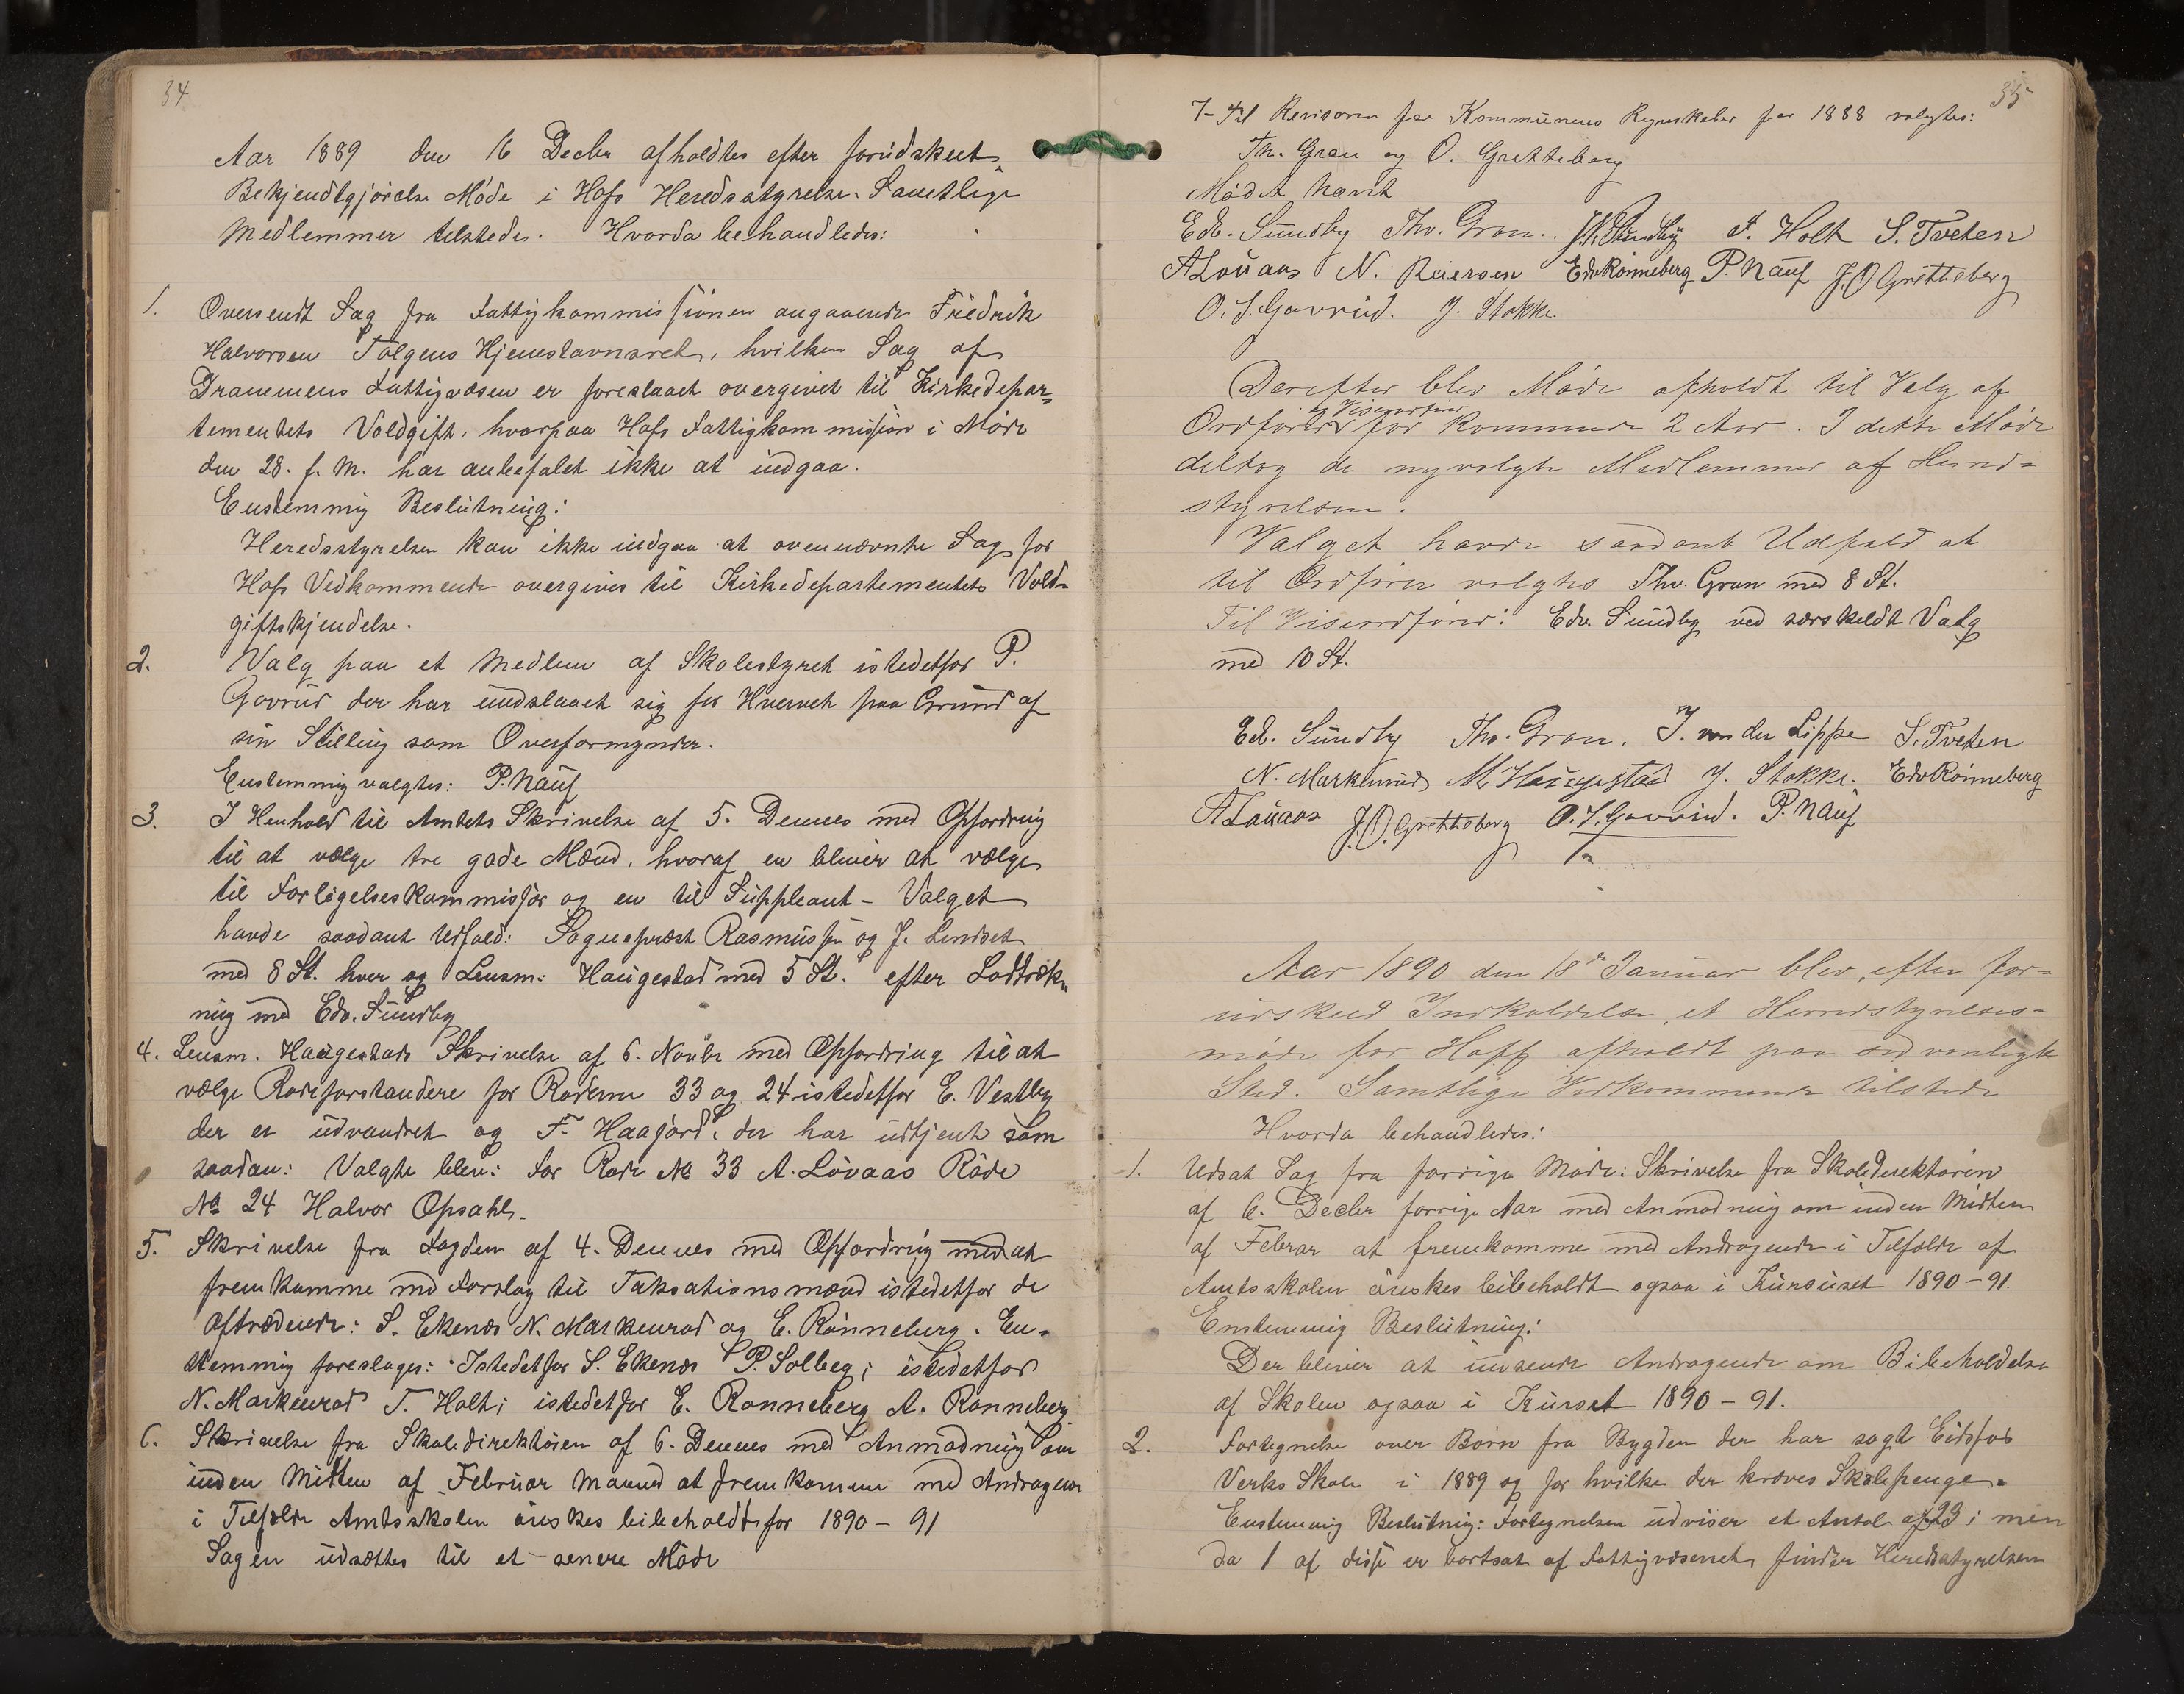 34
Aar 1889 den 16 Decbr afholdtes efter forudskeet
Bekjendtgjørelse Møde i Hofs Heredsstyrelse. Samtlige
Medlemmer tilstede. Hvorda behandledes:
1. Oversendt Sag fra Fattigkommissionen angaaende Fredrik
Halvorsen Tolgens Hjemstavnsret, hvilken Sag af
Drammens Fattigvæsen er foreslaaet overgivet til Kirkedepar=
tementets Voldgift, hvorpaa Hofs Fattigkommission i Møde
den 28. f. M. har anbefalet ikke at indgaa.
Enstemmig Beslutning:
Heredsstyrelsen kan ikke indgaa at ovennævnte Sag for
Hofs Vedkommende overgives til Kirkedepartementets Vold=
giftskjendelse.
2. Valg paa et Medlem af Skolestyret istedetfor P.
Gavrud der har undslaaet sig for Hvervet paa Grund af
sin Stilling som Overformynder.
Enstemmig valgtes: P. Nauf
3. I Henhold til Amtets Skrivelse af 5. Dennes med Opfordring
til at vælge tre gode Mænd, hvoraf en bliver at vælge
til Forligelseskommissær og en til Suppleant - Valget
havde saadant Udfald: Sognepræst Rasmussen og J. Lindset
med 8 St. hver og Lensm: Haugestad med 5 St. efter Lodtræk=
ning med Edv. Sundby
4. Lensm. Haugestads Skrivelse af 6. Novbr med Opfordring til at
vælge Rodeforstandere for Roderne 33 og 24 istedetfor E. Vestby
der er udvandret og F. Haajord, der har udtjent som
saadan: Valgte blev: for Rode No 33 A. Løvaas Rode
No 24 Halvor Opsahl.
5. Skrivelse fra Fogden af 4. Dennes med Opfordring med at
fremkomme med Forslag til Taksationsmænd istedetfor de
aftrædende: S. Ekenes N. Markerud og E. Rønneberg. En=
stemmig foreslages: Istedetfor S. Ekenes P. Solberg; istedetfor
N. Markerud T. Holt; istedetfor E. Rønneberg A. Rønneberg
6. Skrivelse fra Skoledirektøren af 6. Dennes med Anmodning om
inden Midten af Februar Maaned at fremkomme med Andragende
i Tilfælde Amtsskolen ønskes bibeholdt for 1890 - 91
Sagen udsættes til et senere Møde
35
7- Til Revisorer for Kommunens Regnskaber for 1888 valgtes:
Th. Gran og O. Gretteberg
Mødet hævet
Edv. Sundby Thv. Gran. F. Holt S. Tveten
A Løvaas N. Reiersen Edv Rønneberg P. Nauf J. O Gretteberg
O. S. Gavrud. J. Stokke.
Derefter blev Møde afholdt til Valg af
og Viseordfører
Ordfører for kommende 2 Aar. I dette Møde
deltog de nyvalgte Medlemmer af Hered=
styrelsen.
Valget havde saadant Udfald at
til Ordfører valgtes Thv. Gran med 8 St.
Til Viseordfører: Edv. Sundby ved særskildt Valg
med 10 St.
Edv. Sundby Thv. Gran. J. von der Lippe S. Tveten
N. Markerud M Haugestad J. Stokke. Edv Rønneberg
A Løvaas J. O. Gretteberg O. S. Gavrud. P. Nauf
Aar 1890 den 18de Januar blev, efter for=
udskeed Indkaldelse, et Heredstyrelses=
møde for Hoff afholdt paa sedvanligt
Sted. Samtlige Vedkommende tilstede
Hvorda behandledes:
1. Udsat Sag fra forrige Møde: Skrivelse fra Skoledirektøren
af 6. Decbr forrige Aar med Anmodning om inden Midten
af Febrar at fremkomme med Andragende i Tilfælde af
Amtsskolen ønskes bibeholdt ogsaa i Kursuset 1890 - 91.
Enstemmig Beslutning:
Der bliver at indsende Andragende om Bibeholdelse
af Skolen ogsaa i Kurset 1890 - 91.
2. Fortegnelse over Børn fra Bygden der har søgt Eidsfos
Verks Skole i 1889 og for hvilke der kræves Skolepenge.
Enstemmig Beslutning: Fortegnelsen udviser et Antal af 23; men
da 1 af disse er bortsat af Fattigvæsenet, finder Heredsstyrelsen